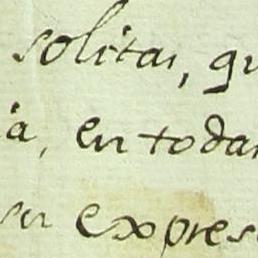 solitas, qu
ia, en todas
su expres